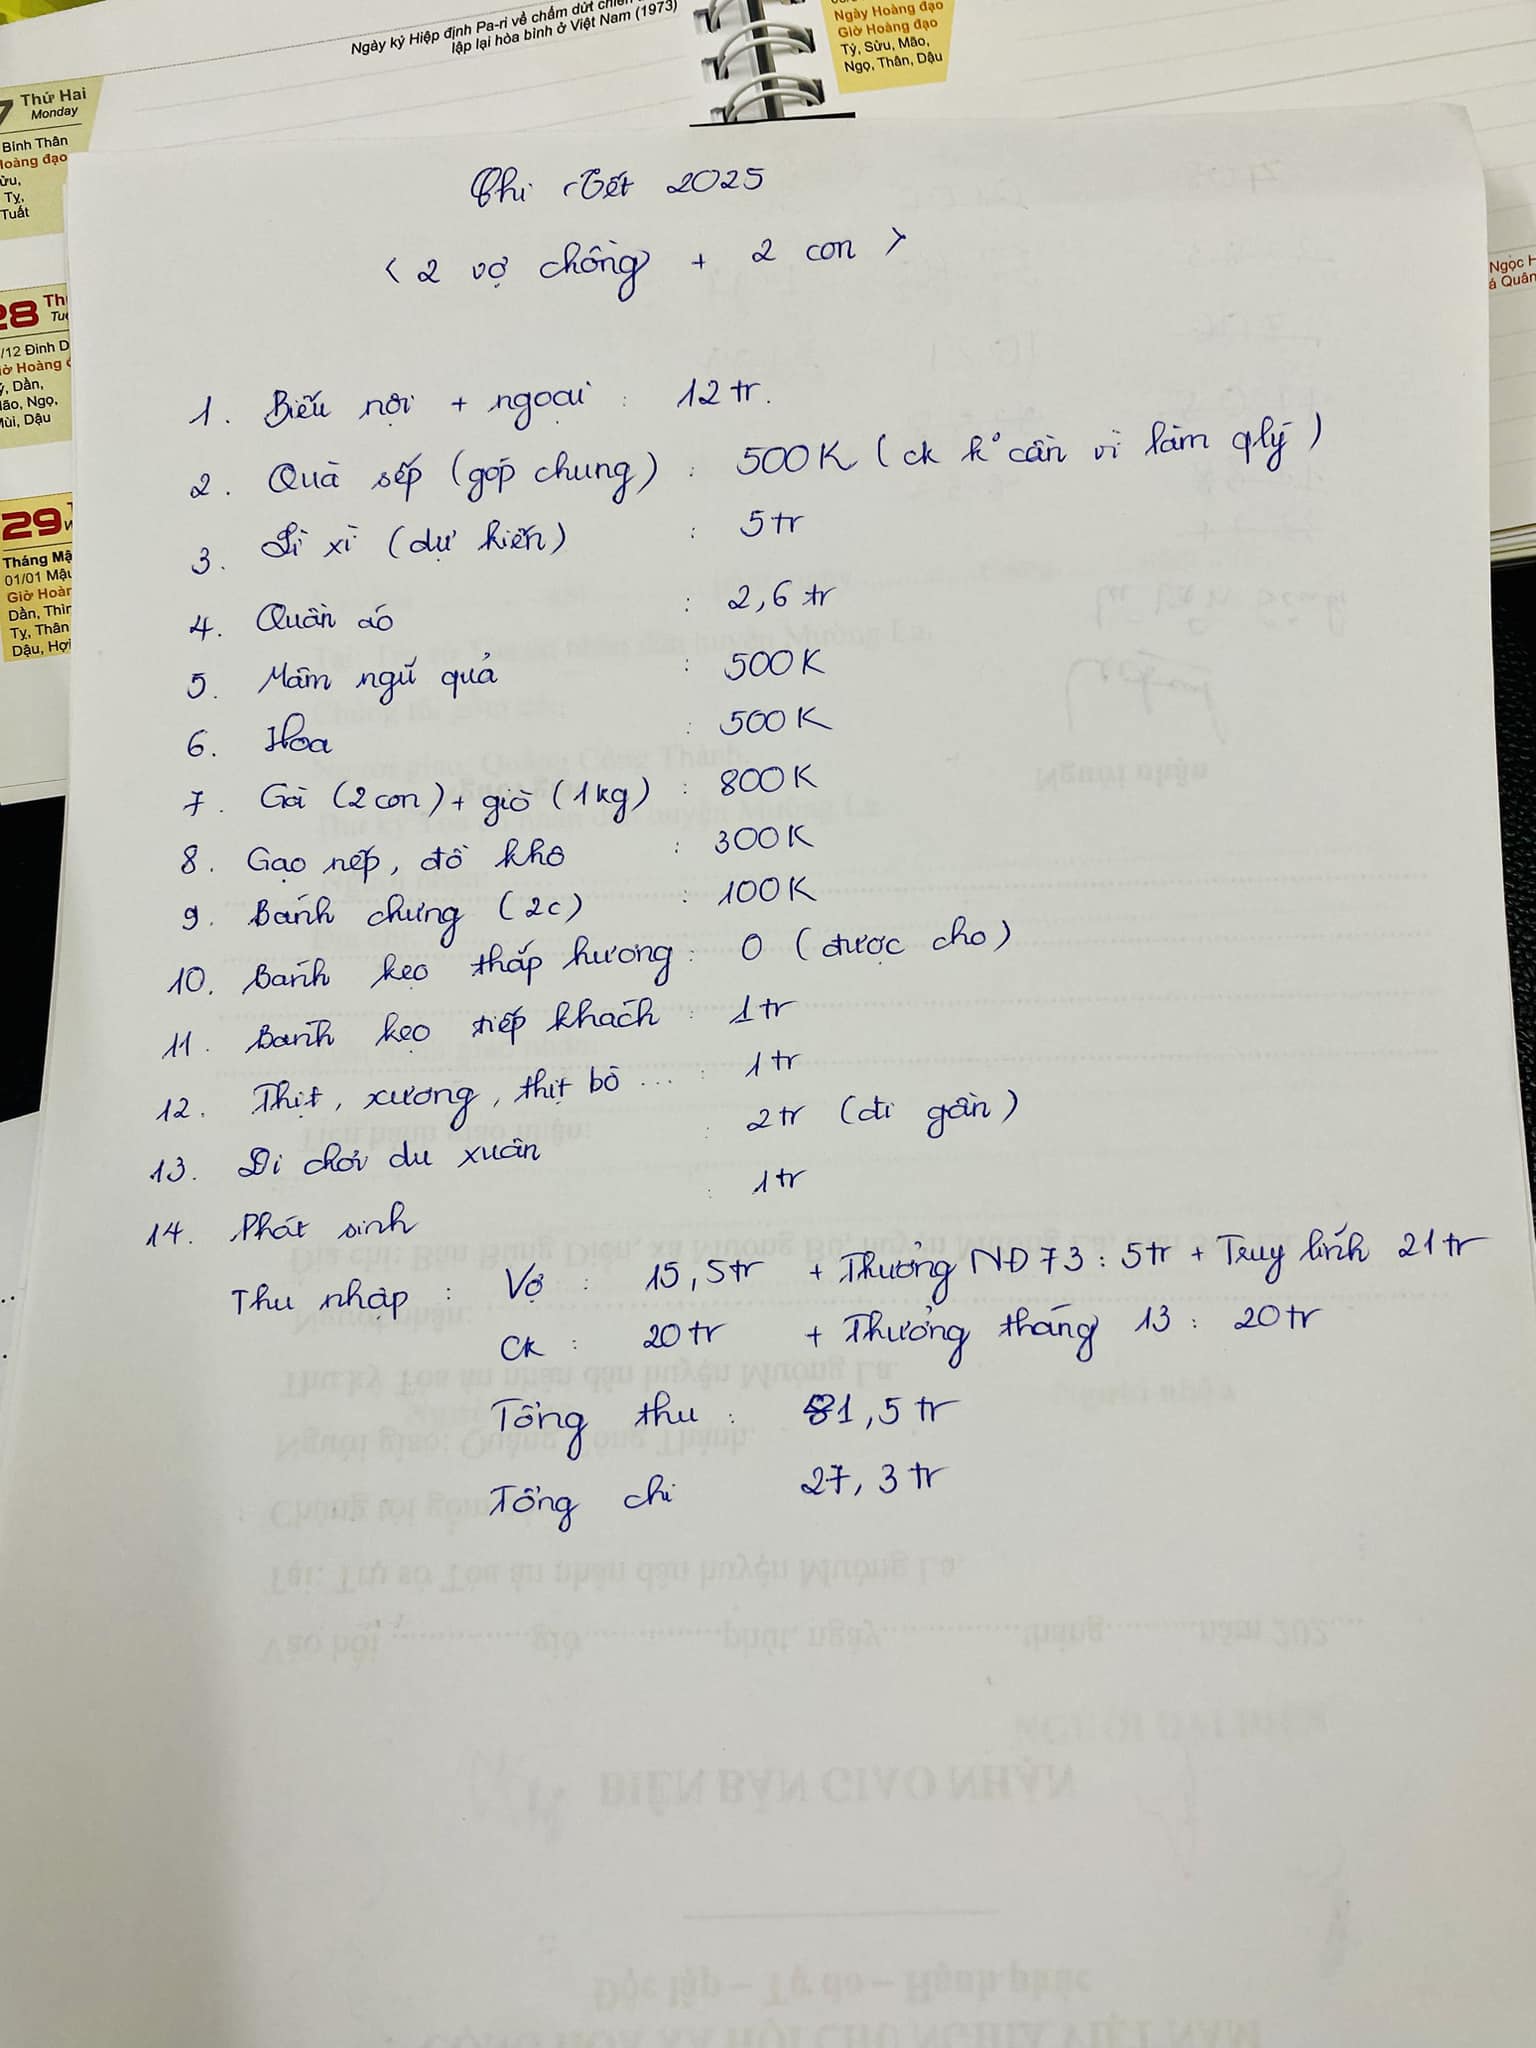 Ngày ký Hiệp định Pa-ri về chấm dứt chiến
lập lại hòa bình ở Việt Nam (1973)
Ngày Hoàng đạo
Giờ Hoàng đạo
Tý, Sửu, Mão,
Ngọ, Thân, Dậu
7 Thứ Hai
Monday
Bính Thân
Hoàng đạo
Sửu,
Tỵ,
Tuất
28
/12 Đinh
Giờ Hoàng
Dần,
Mão, Ngọ,
Mùi, Dậu
29
Tháng
01/01 Mậu
Giờ Hoàng
Dần, Thìn
Tỵ, Thân
Dậu, Hợi
Ngọc
Quân
Chi Tết 2025
< 2 vợ chồng + 2 con >
1. Biếu nội + ngoại : 12 tr.
2. Quà sếp (góp chung) : 500K (ck k° cần vì làm qlý)
3. Lì xì (dự kiến) : 5 tr
4. Quần áo : 2,6 tr
5. Mâm ngũ quả : 500K
6. Hoa : 500K
7. Gà (2 con) + giò (1kg) : 800K
8. Gạo nếp, đồ khô : 300K
9. Bánh chưng (2c) : 100K
10. Bánh kẹo thắp hương : 0 (được cho)
11. Bánh kẹo tiếp khách : 1 tr
12. Thịt, xương, thịt bò ... : 1 tr
13. Đi chơi du xuân : 2 tr (đi gần)
14. Phát sinh : 1 tr
Thu nhập : Vợ : 15,5 tr + Thưởng NĐ 73 : 5 tr + Truy lĩnh 21 tr
Ck : 20 tr + Thưởng tháng 13 : 20 tr
Tổng thu : 81,5 tr
Tổng chi 27,3 tr